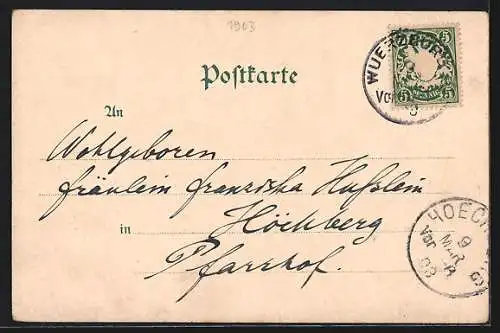 1903
Postkarte
WUERZBURG
5 5
An
Wohlgeboren
Fräulein Franziska Hußlein
in Höchberg
Pfarrhof.
HOECH
9
MAR
03